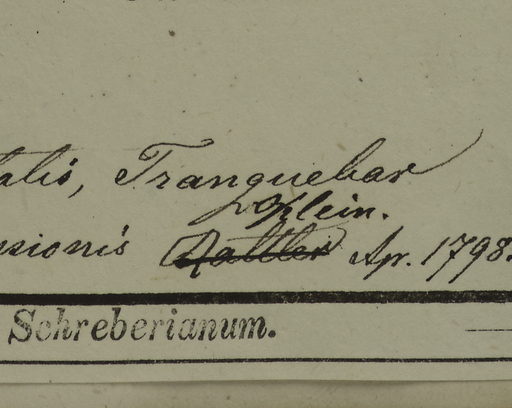 talis, Tranquebar
Klein.
ssionis Rottler Apr. 1798.
Schreberianum.